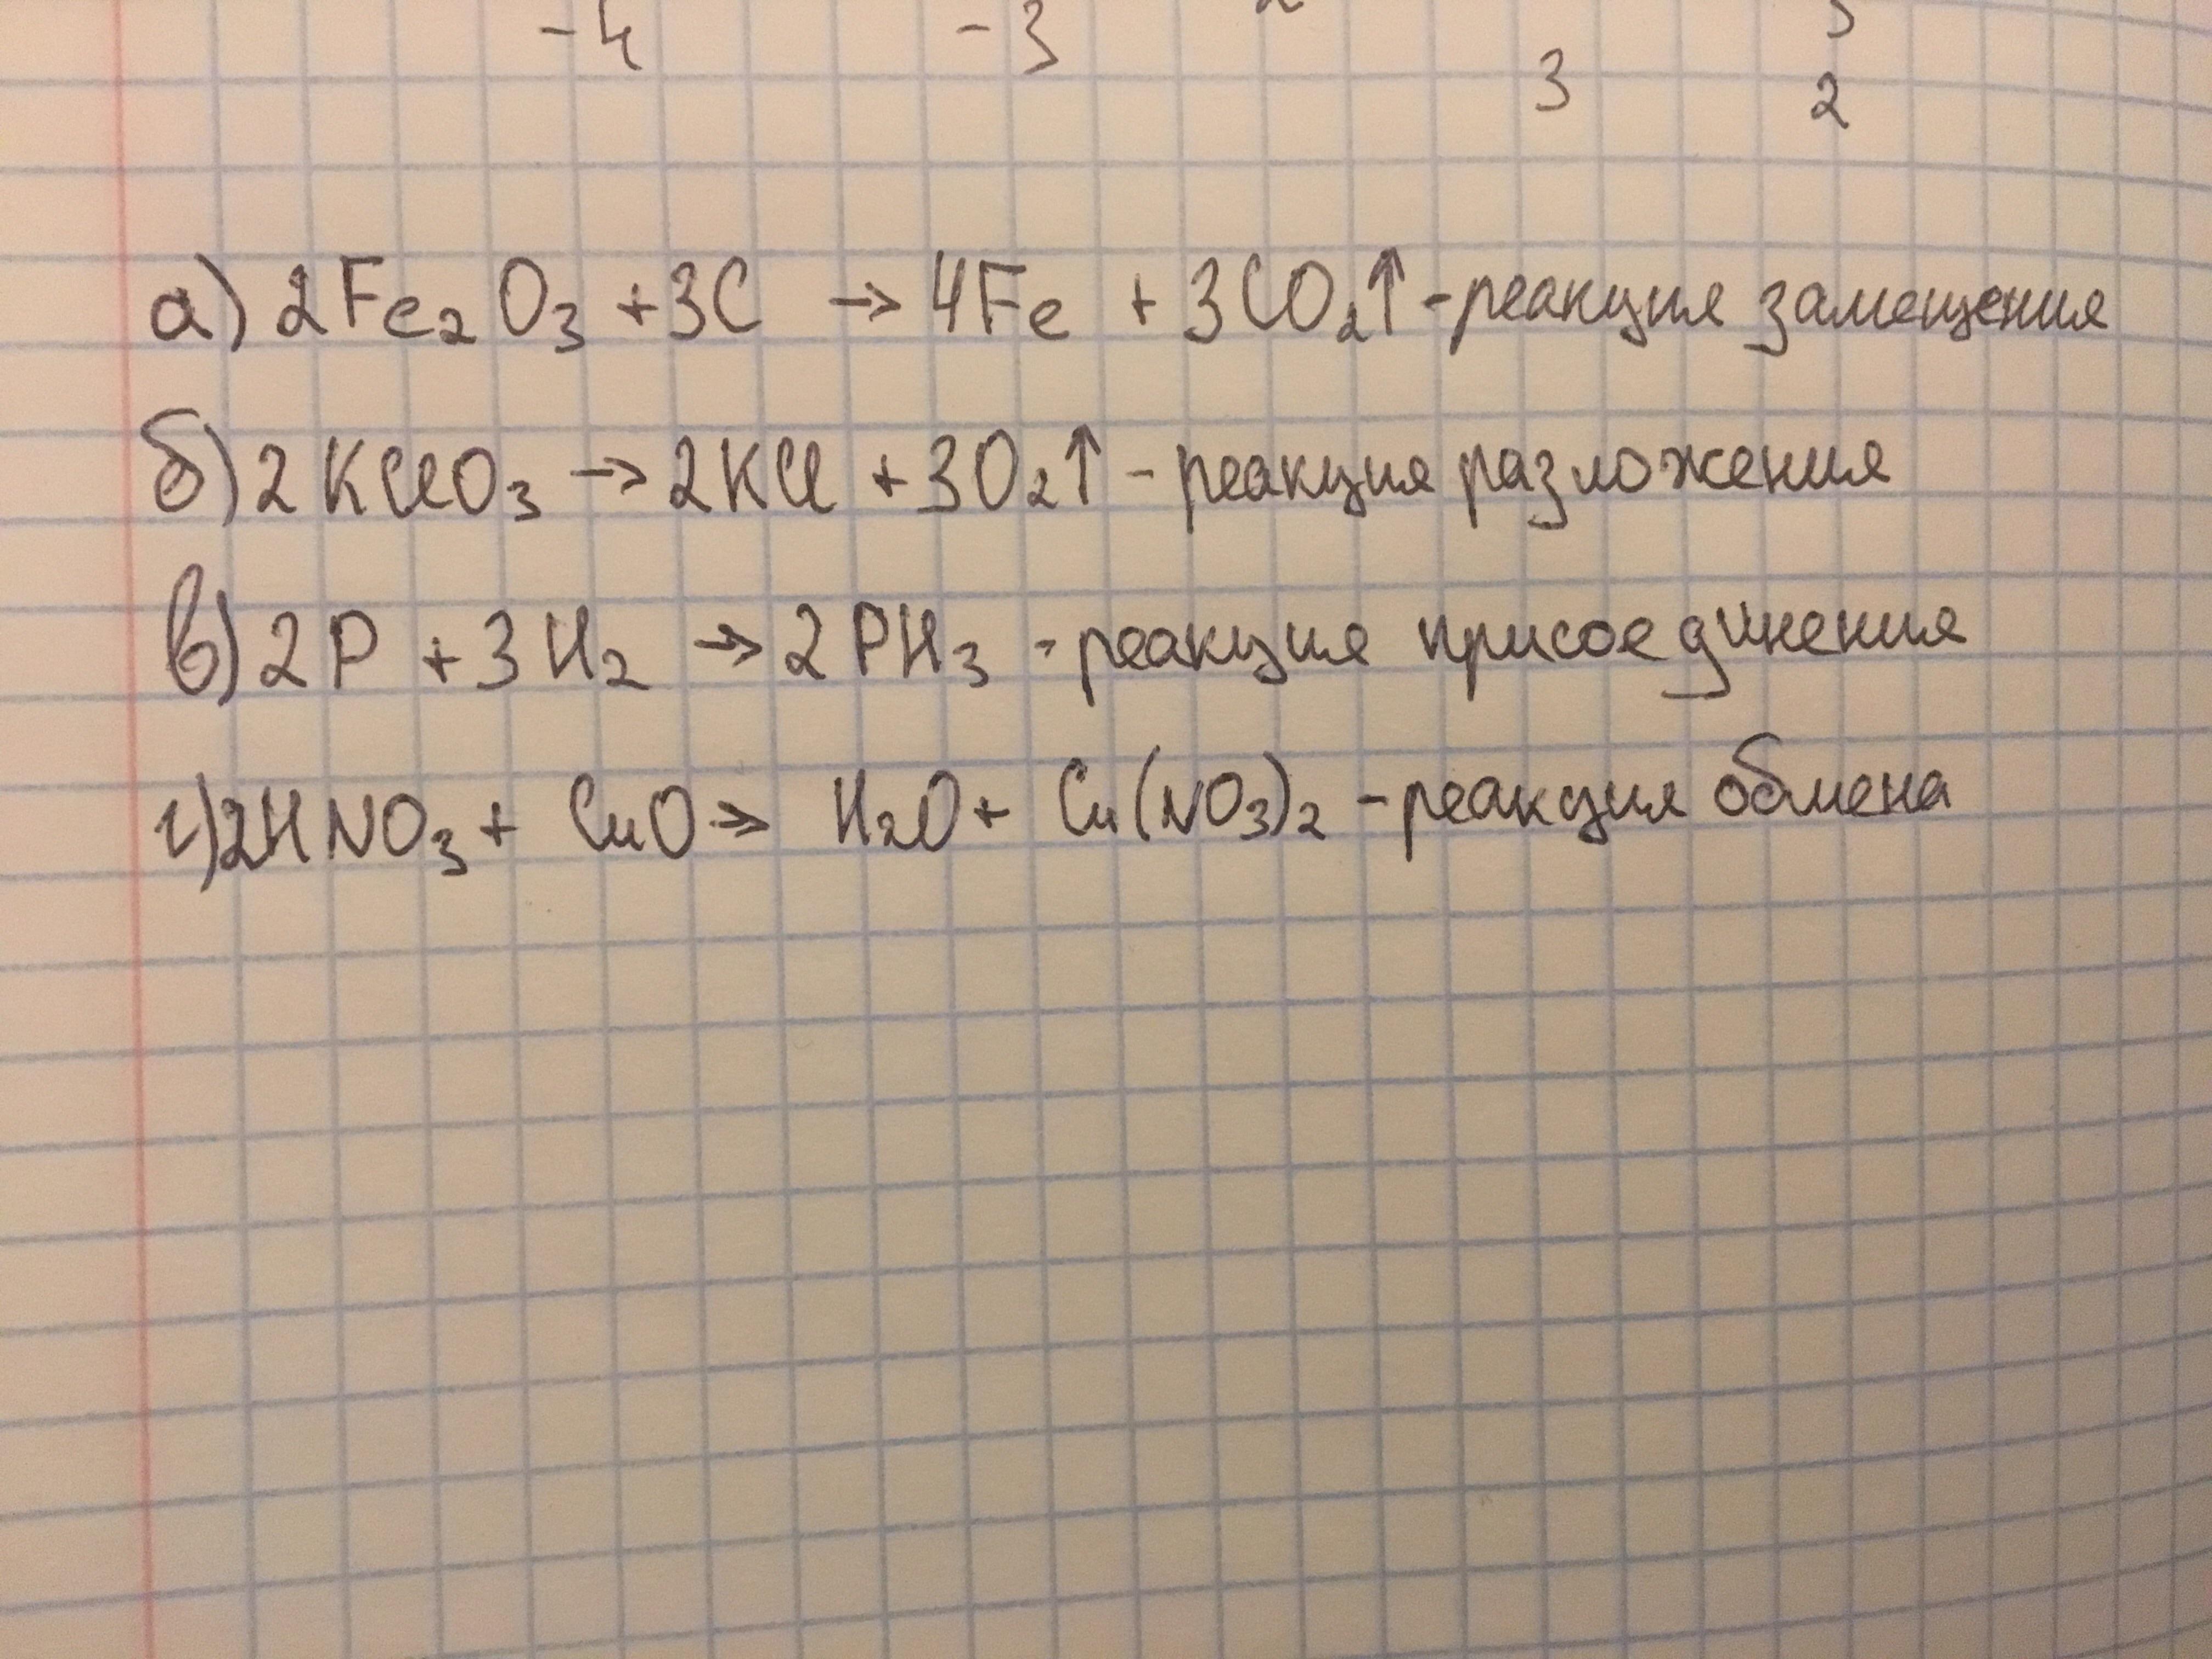 -4 -3
3 2
а) 2Fe₂O₃ + 3C → 4Fe + 3CO₂↑ - реакция замещения
б) 2KClO₃ → 2KCl + 3O₂↑ - реакция разложения
в) 2P + 3H₂ → 2PH₃ - реакция присоединения
г) 2HNO₃ + CuO → H₂O + Cu(NO₃)₂ - реакция обмена